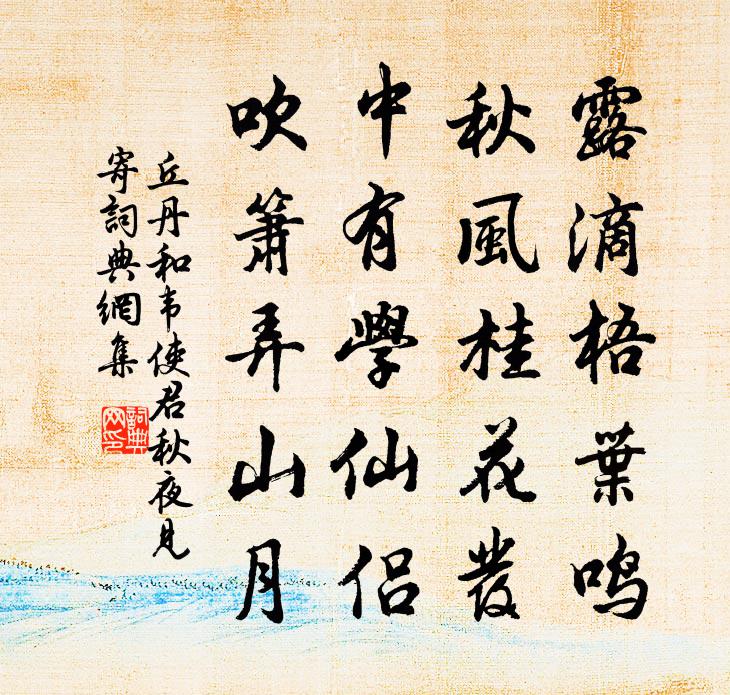 露滴梧葉鳴
秋風桂花發
中有學仙侶
吹簫弄山月
丘丹和韦使君秋夜見
寄詞典網集
詞典
网印